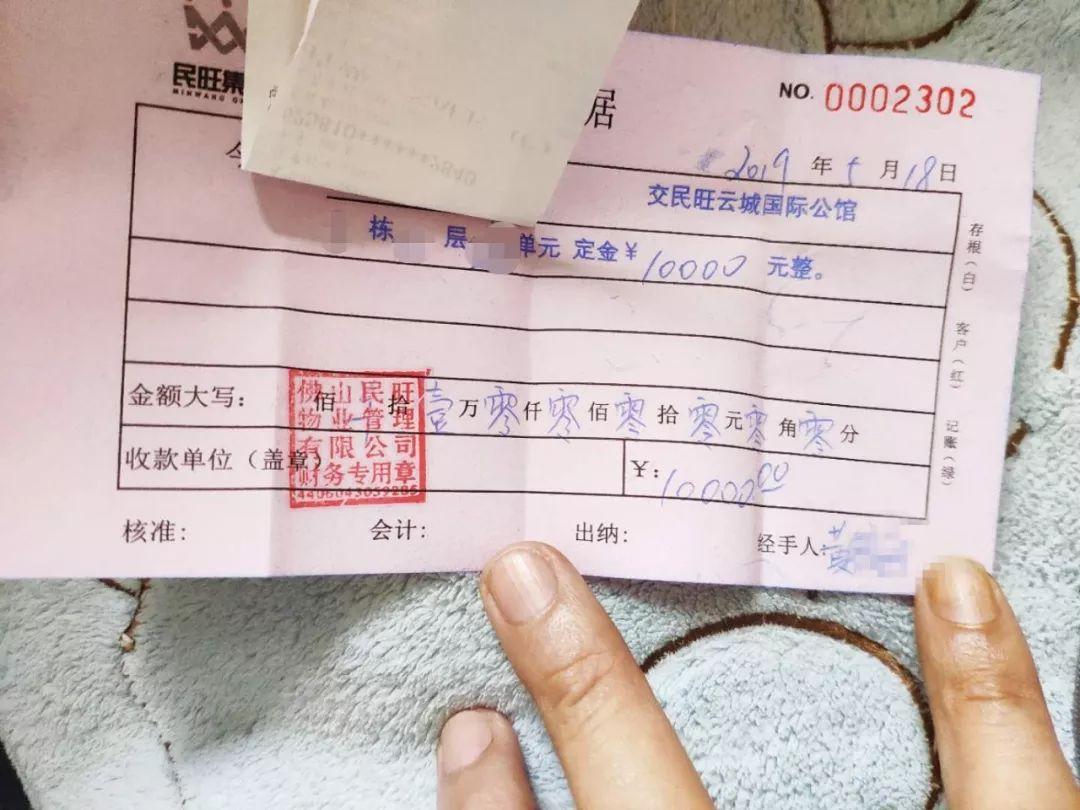 民旺集
MINWANG G
据
NO. 0002302
2019年5月18日
交民旺云城国际公馆
栋 层 单元 定金¥10000元整。
金额大写: 佰 拾壹万零仟零佰零拾零元零角零分
收款单位(盖章)
¥: 10000.00
佛山民旺
物业管理
有限公司
财务专用章
4406043059285
核准:
会计:
出纳:
经手人:黄
存根(白)
客户(红)
记账(绿)